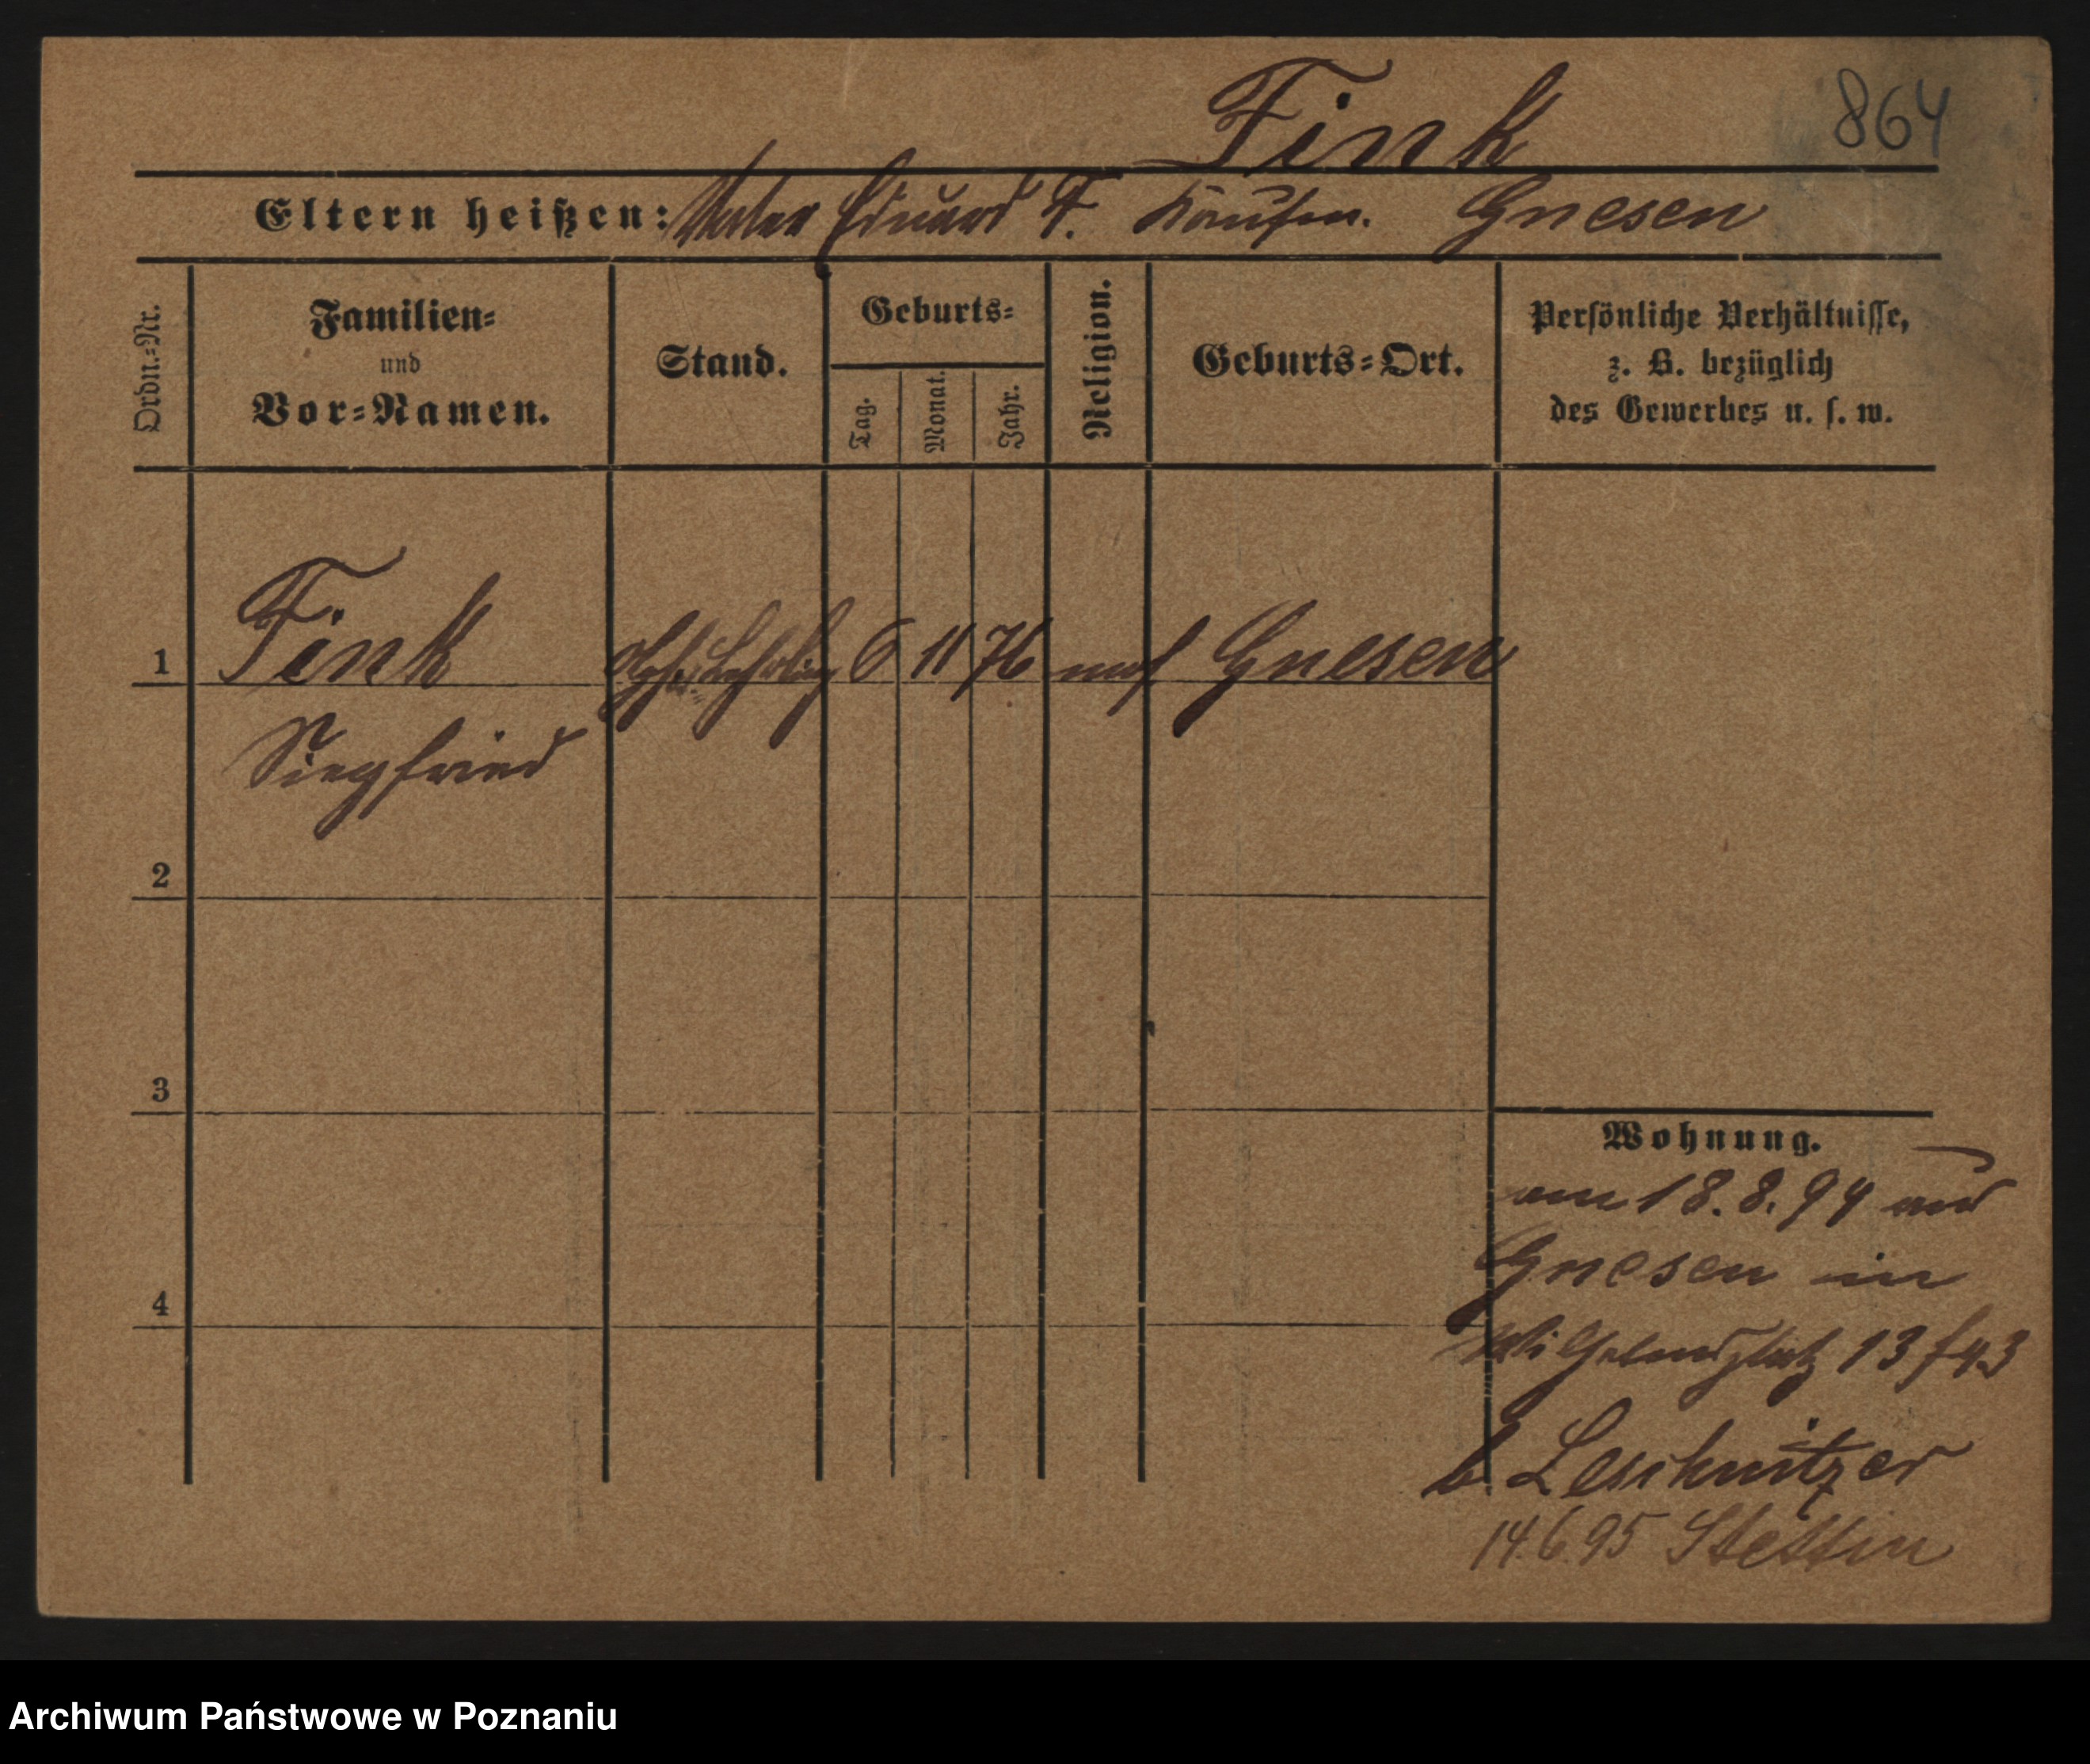 Fink 864
Eltern heißen: Vater Eduard F. Kaufm. Gnesen
Ordn.-Nr.
Familien-
und
Vor-Namen.
Stand.
Geburts-
Tag.
Monat.
Jahr.
Religion.
Geburts-Ort.
Persönliche Verhältnisse,
z. B. bezüglich
des Gewerbes u. s. w.
1 Fink Lehrling 6 11 76 mos Gnesen
Siegfried
2
3
4
Wohnung.
am 18.8.94 aus
Gnesen in
Wilhelmsplatz 13
b. Leschnitzer
14.6.95 Stettin
Archiwum Państwowe w Poznaniu